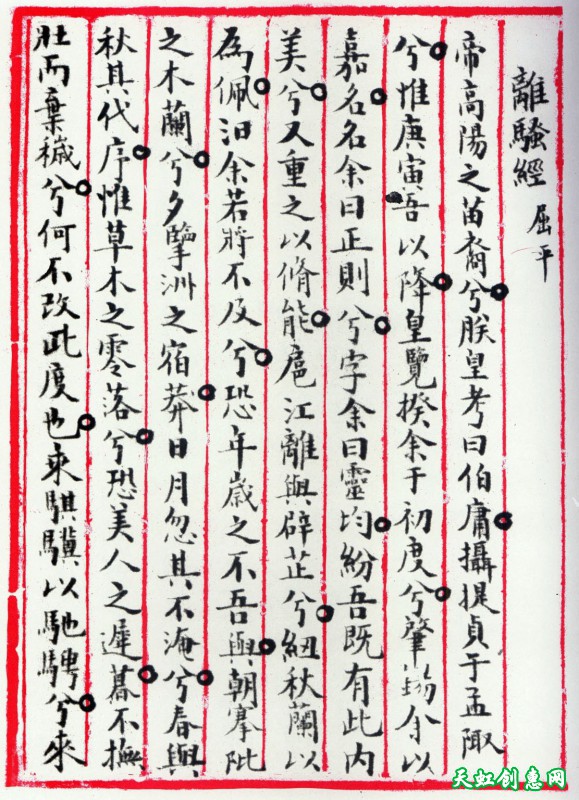 離騷經 屈平
帝高陽之苗裔兮朕皇考曰伯庸攝提貞于孟陬
兮惟庚寅吾以降皇覽揆余于初度兮肇錫余以
嘉名名余曰正則兮字余曰靈均紛吾既有此内
美兮又重之以脩能扈江離與辟芷兮紐秋蘭以
為佩汩余若將不及兮恐年歲之不吾與朝搴阰
之木蘭兮夕擥洲之宿莽日月忽其不淹兮春與
秋其代序惟草木之零落兮恐美人之遲暮不撫
壯而棄穢兮何不改此度也乘騏驥以馳騁兮來
天虹创惠网